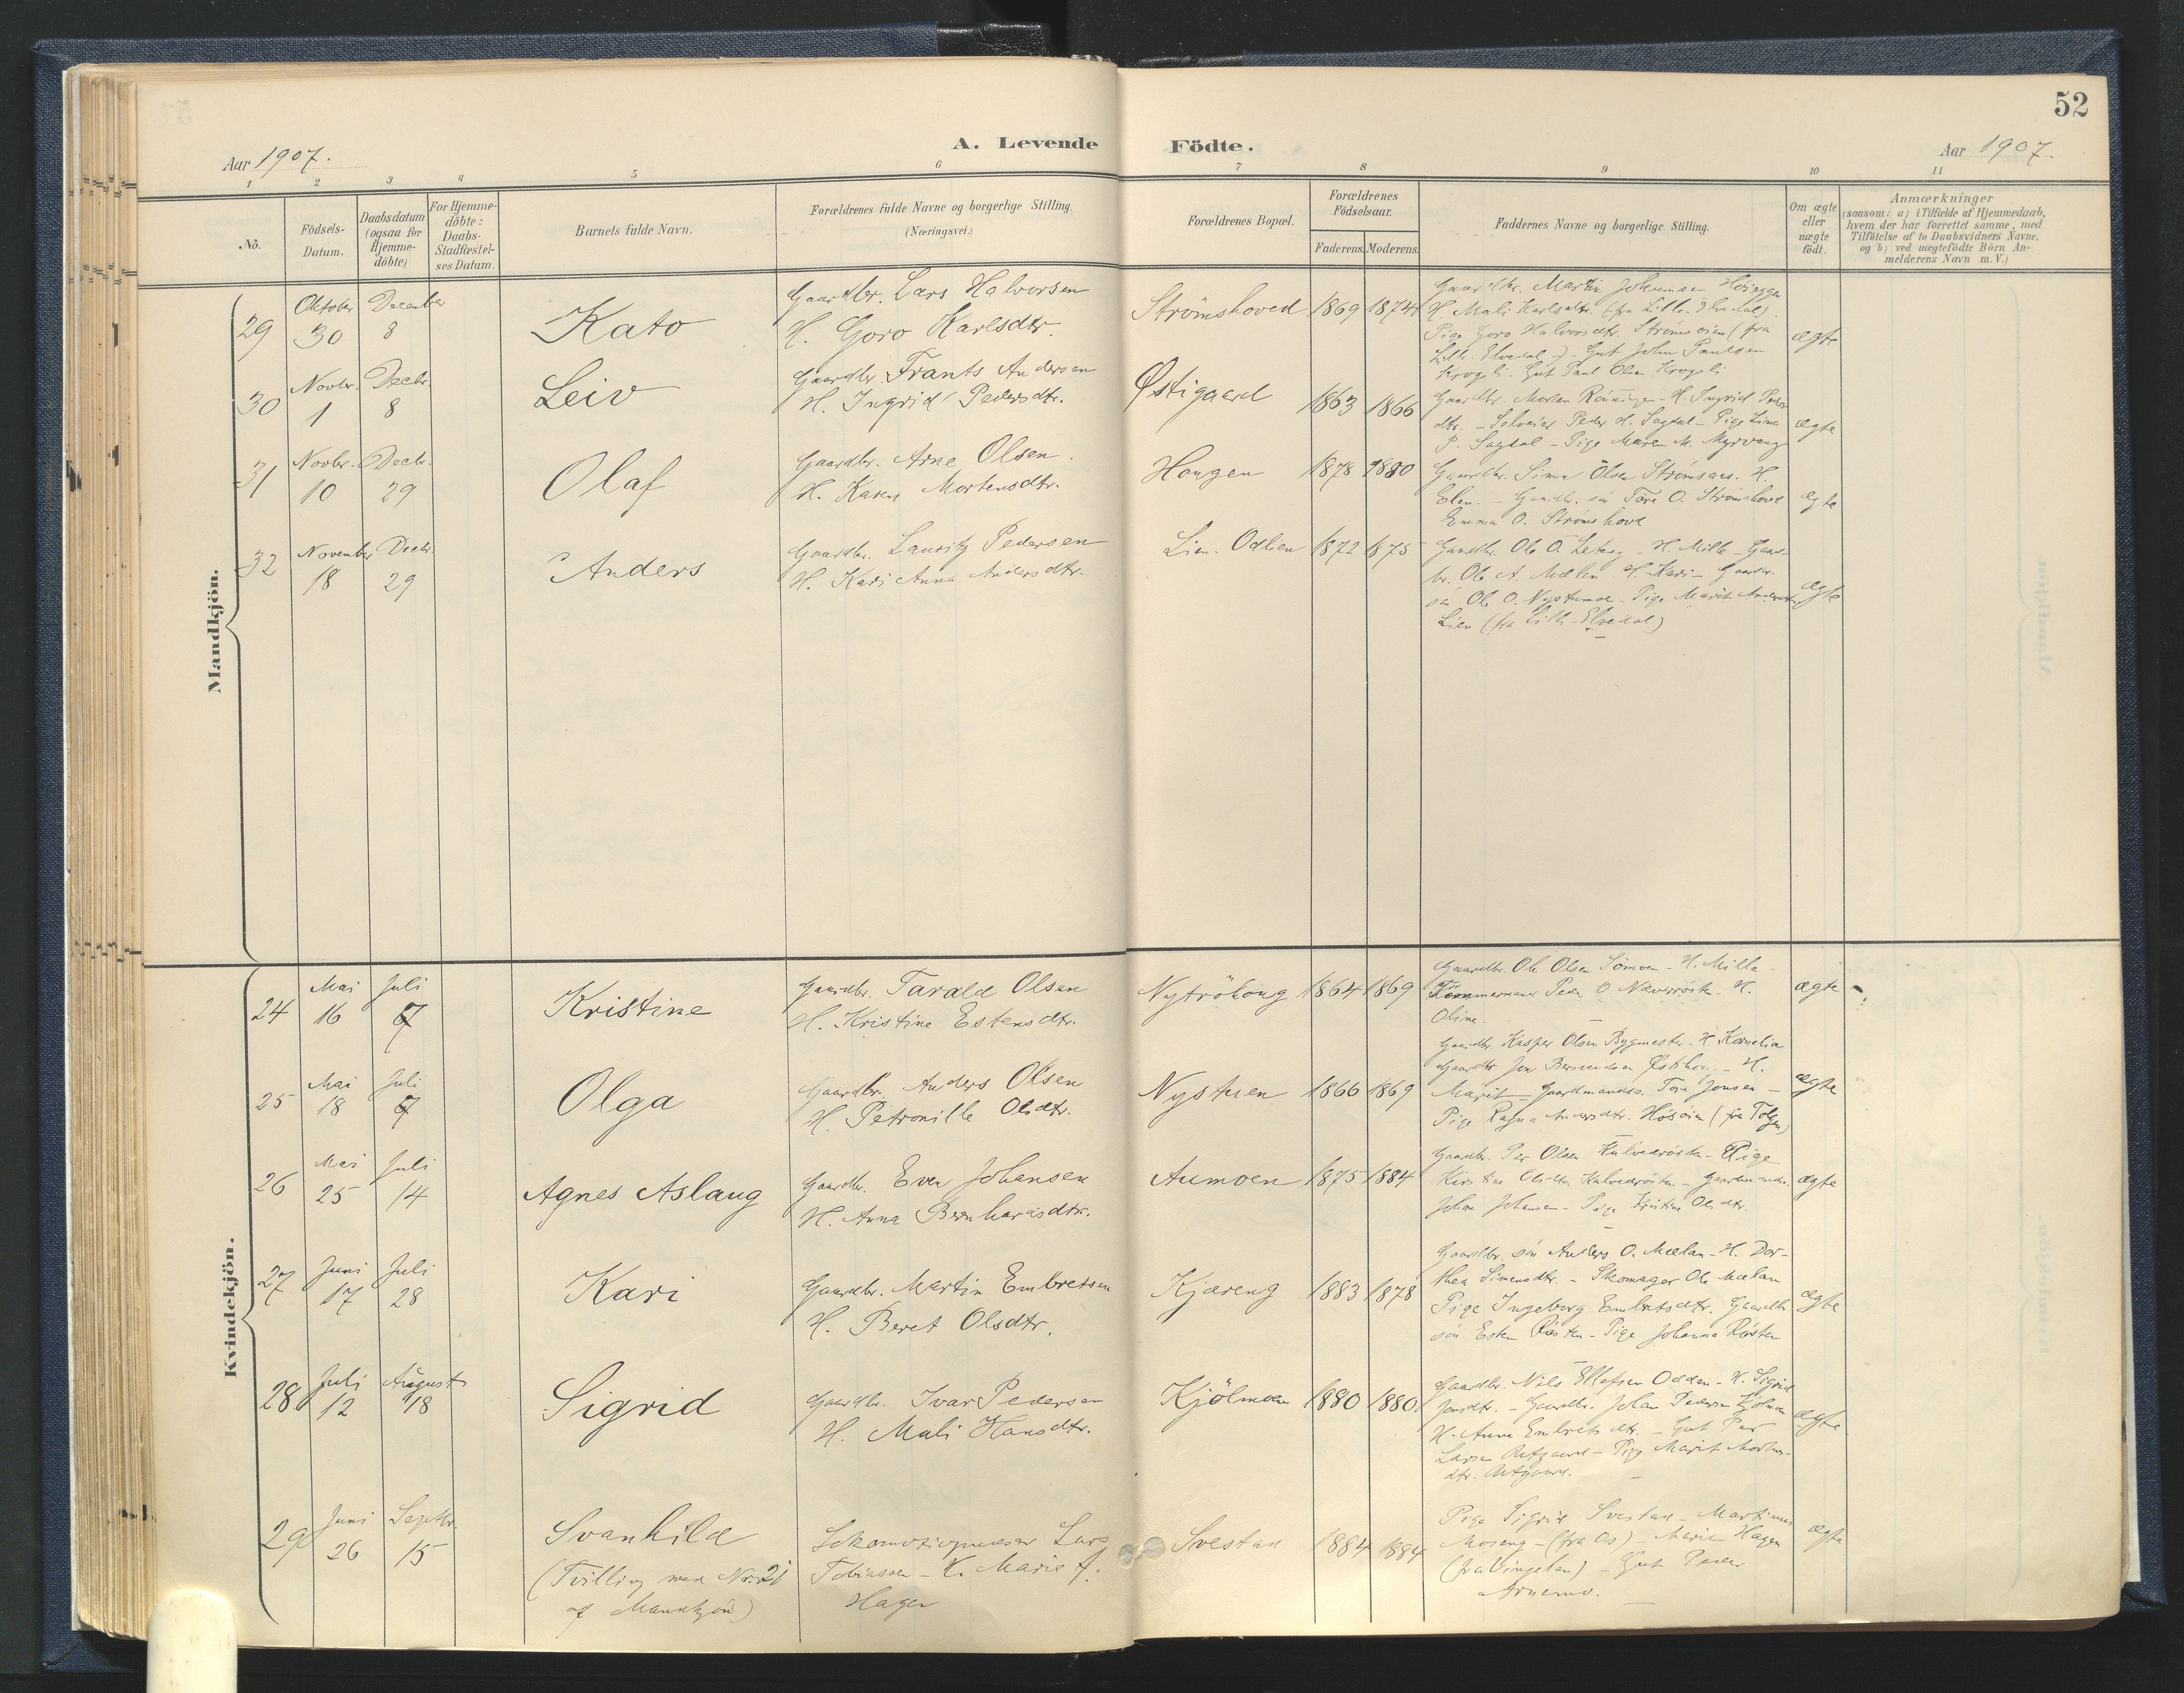 52
Aar 1907.
A. Levende Födte.
Aar 1907.
1 2 3 4 5 6 7 8 9 10 11
No.
Födsels-
Datum.
Daabsdatum
(ogsaa for
Hjemme-
döbte)
For Hjemme-
döbte:
Daabs-
Stadfæstel-
ses Datum.
Barnets fulde Navn.
Forældrenes fulde Navne og borgerlige Stilling.
(Næringsvei.)
Forældrenes Bopæl.
Forældrenes
Födselsaar.
Faderens. Moderens.
Faddernes Navne og borgerlige Stilling.
Om ægte
eller
uægte
födt.
Anmærkninger
(saasom: a) i Tilfælde af Hjemmedaab,
hvem der har forrettet samme, med
Tilföielse af to Daabsvidners Navne,
og b) ved uægtefödte Börn An-
melderens Navn m. V.)
Mandkjön.
29
Oktober
30
December
8
Kato
Gaardbr. Lars Halvorsen
H. Goro Karlsdtr.
Strömshoved
1869 1874
Gaardbr. Martin Johannsen
H. Mali Karlsdtr. (fra Lille-Elvedal).
Pige Goro Halvorsdtr. Strömsöien (fra
Lille-Elvedal) - Gut John Paulsen
Krogsli - Gut Paul Olsen Krogsli
ægte
30
Novbr.
1
Decbr.
8
Leiv
Gaardbr. Frants Andersen
H. Ingrid Pedersdtr.
Østigaard
1863 1866
Gaardbr. Morten Röninigen - H. Ingrid Peders
dtr. - Selveier Peder H. Sagdal - Pige Lina
P. Sagdal - Pige Maren M. Myrvang
ægte
31
Novbr.
10
Decbr.
29
Olaf
Gaardbr. Arne Olsen.
H. Karen Mortensdtr.
Hougen
1878 1880
Gaardbr. Simen Olsen Strömsaas. H.
Elen. - Gaardbr. sön Tore O. Strömshove
Emma O. Strömshove
ægte
32
November
18
Decbr.
29
Anders
Gaardbr. Lauritz Pedersen
H. Kari Anna Andersdtr.
Lien. Odlien
1872 1875
Gaardbr. Ole O. - H. Mille - Gaard-
br. Ole A. Mælen. H. Kari - Gaardbr.
sön Ole O. Nystumoe - Pige Marit Andersdtr.
Lien (fra Lille-Elvedal)
ægte
Kvindekjön.
24
Mai
16
Juli
7
Kristine
Gaardbr. Tarald Olsen
H. Kristine Estensdtr.
Nytröhöug
1864 1869
Gaardbr. Ole Olsen Tömoen - H. Mille -
Tömmermand Peder O. Næverrösten - H.
Oline.
ægte
25
Mai
18
Juli
7
Olga
Gaardbr. Anders Olsen
H. Petronille Olsdtr.
Nystuen
1866 1869
Gaardbr. Kasper Olsen Bygmester - H. Kornelia
Gaardbr. Jon Bersvendsen - H.
Marit - Gaardmands. Tore Jonsen -
Pige Ragna Andersdtr. Hösöien (fra Tolgen)
ægte
26
Mai
25
Juli
14
Agnes Aslaug
Gaardbr. Even Johansen
H. Anna Bernhardsdtr.
Aumoen
1875 1884
Gaardbr. Per Olsen Kulvedrösten - Pige
Kirstine Olsdtr. Kulvedrösten - Gaardmands.
Johan Johansen - Pige Kristine Olsdtr.
ægte
27
Juni
17
Juli
28
Kari
Gaardbr. Martin Embretsen
H. Beret Olsdtr.
Kjæreng
1883 1878
Gaardbr. sön Anders O. Mælan - H. Dor-
thea Simensdtr. - Skomager Ole Mælan
Pige Ingeborg Embretsdtr. Gaardbr.
sön Esten Rösten - Pige Johanna Rösten
ægte
28
Juli
12
August
18
Sigrid
Gaardbr. Ivar Pedersen
H. Mali Hansdtr.
Kjölmoen
1880 1880
Gaardbr. Nils Ellefsen Odden - H. Sigrid
Jonsdtr. - Gaardbr. Johan Pedersen Kjölmoen
H. Anne Embretsdtr. - Gut Per
Larsen - Pige Marit Mortens-
dtr.
ægte
29
Juni
26
Septbr.
15
Svanhild
(Tvilling med Nr. 21
af Mandkjön)
Lars
Tobiassen - K. Marie A.
Hagen
Svestad
1884 1884
Pige Sigrid Svestad - Martinus
Moseng - (fra Os) - Marie Hagen
(fra Vingelen) - Gut Peder
Arnemo.
ægte